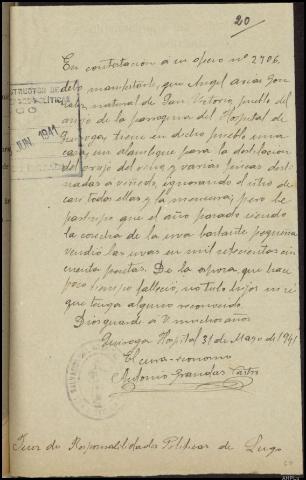 20
En contestación á su oficio nº 2706,
debo manifestarle, que Angel Arias Gon
zalez, natural de San Vitorio, pueblo del
anejo de la parroquia del Hospital de
Quiroga, tiene en dicho pueblo una
casa, un alambique para la destilación
del orujo del vino y varias fincas desti
nadas a viñedo, ignorando el sitio de
casi todas ellas y la mensura; pero le
participo que el año pasado siendo
la cosecha de la uva bastante pequeña
vendió las uvas en mil setecientas cin
cuenta pesetas. De la esposa que hace
poco tiempo falleció, no tuvo hijos ni sé
que tenga alguno reconocido.
Dios guarde a V muchos años
Quiroga Hospital 31 de Mayo de 1941
El cura-economo
Antonio Grandas Castro
Juez de Responsabilidades Politicas de Lugo
INSTRUCTOR DE
POLÍTICAS
JUN. 1941